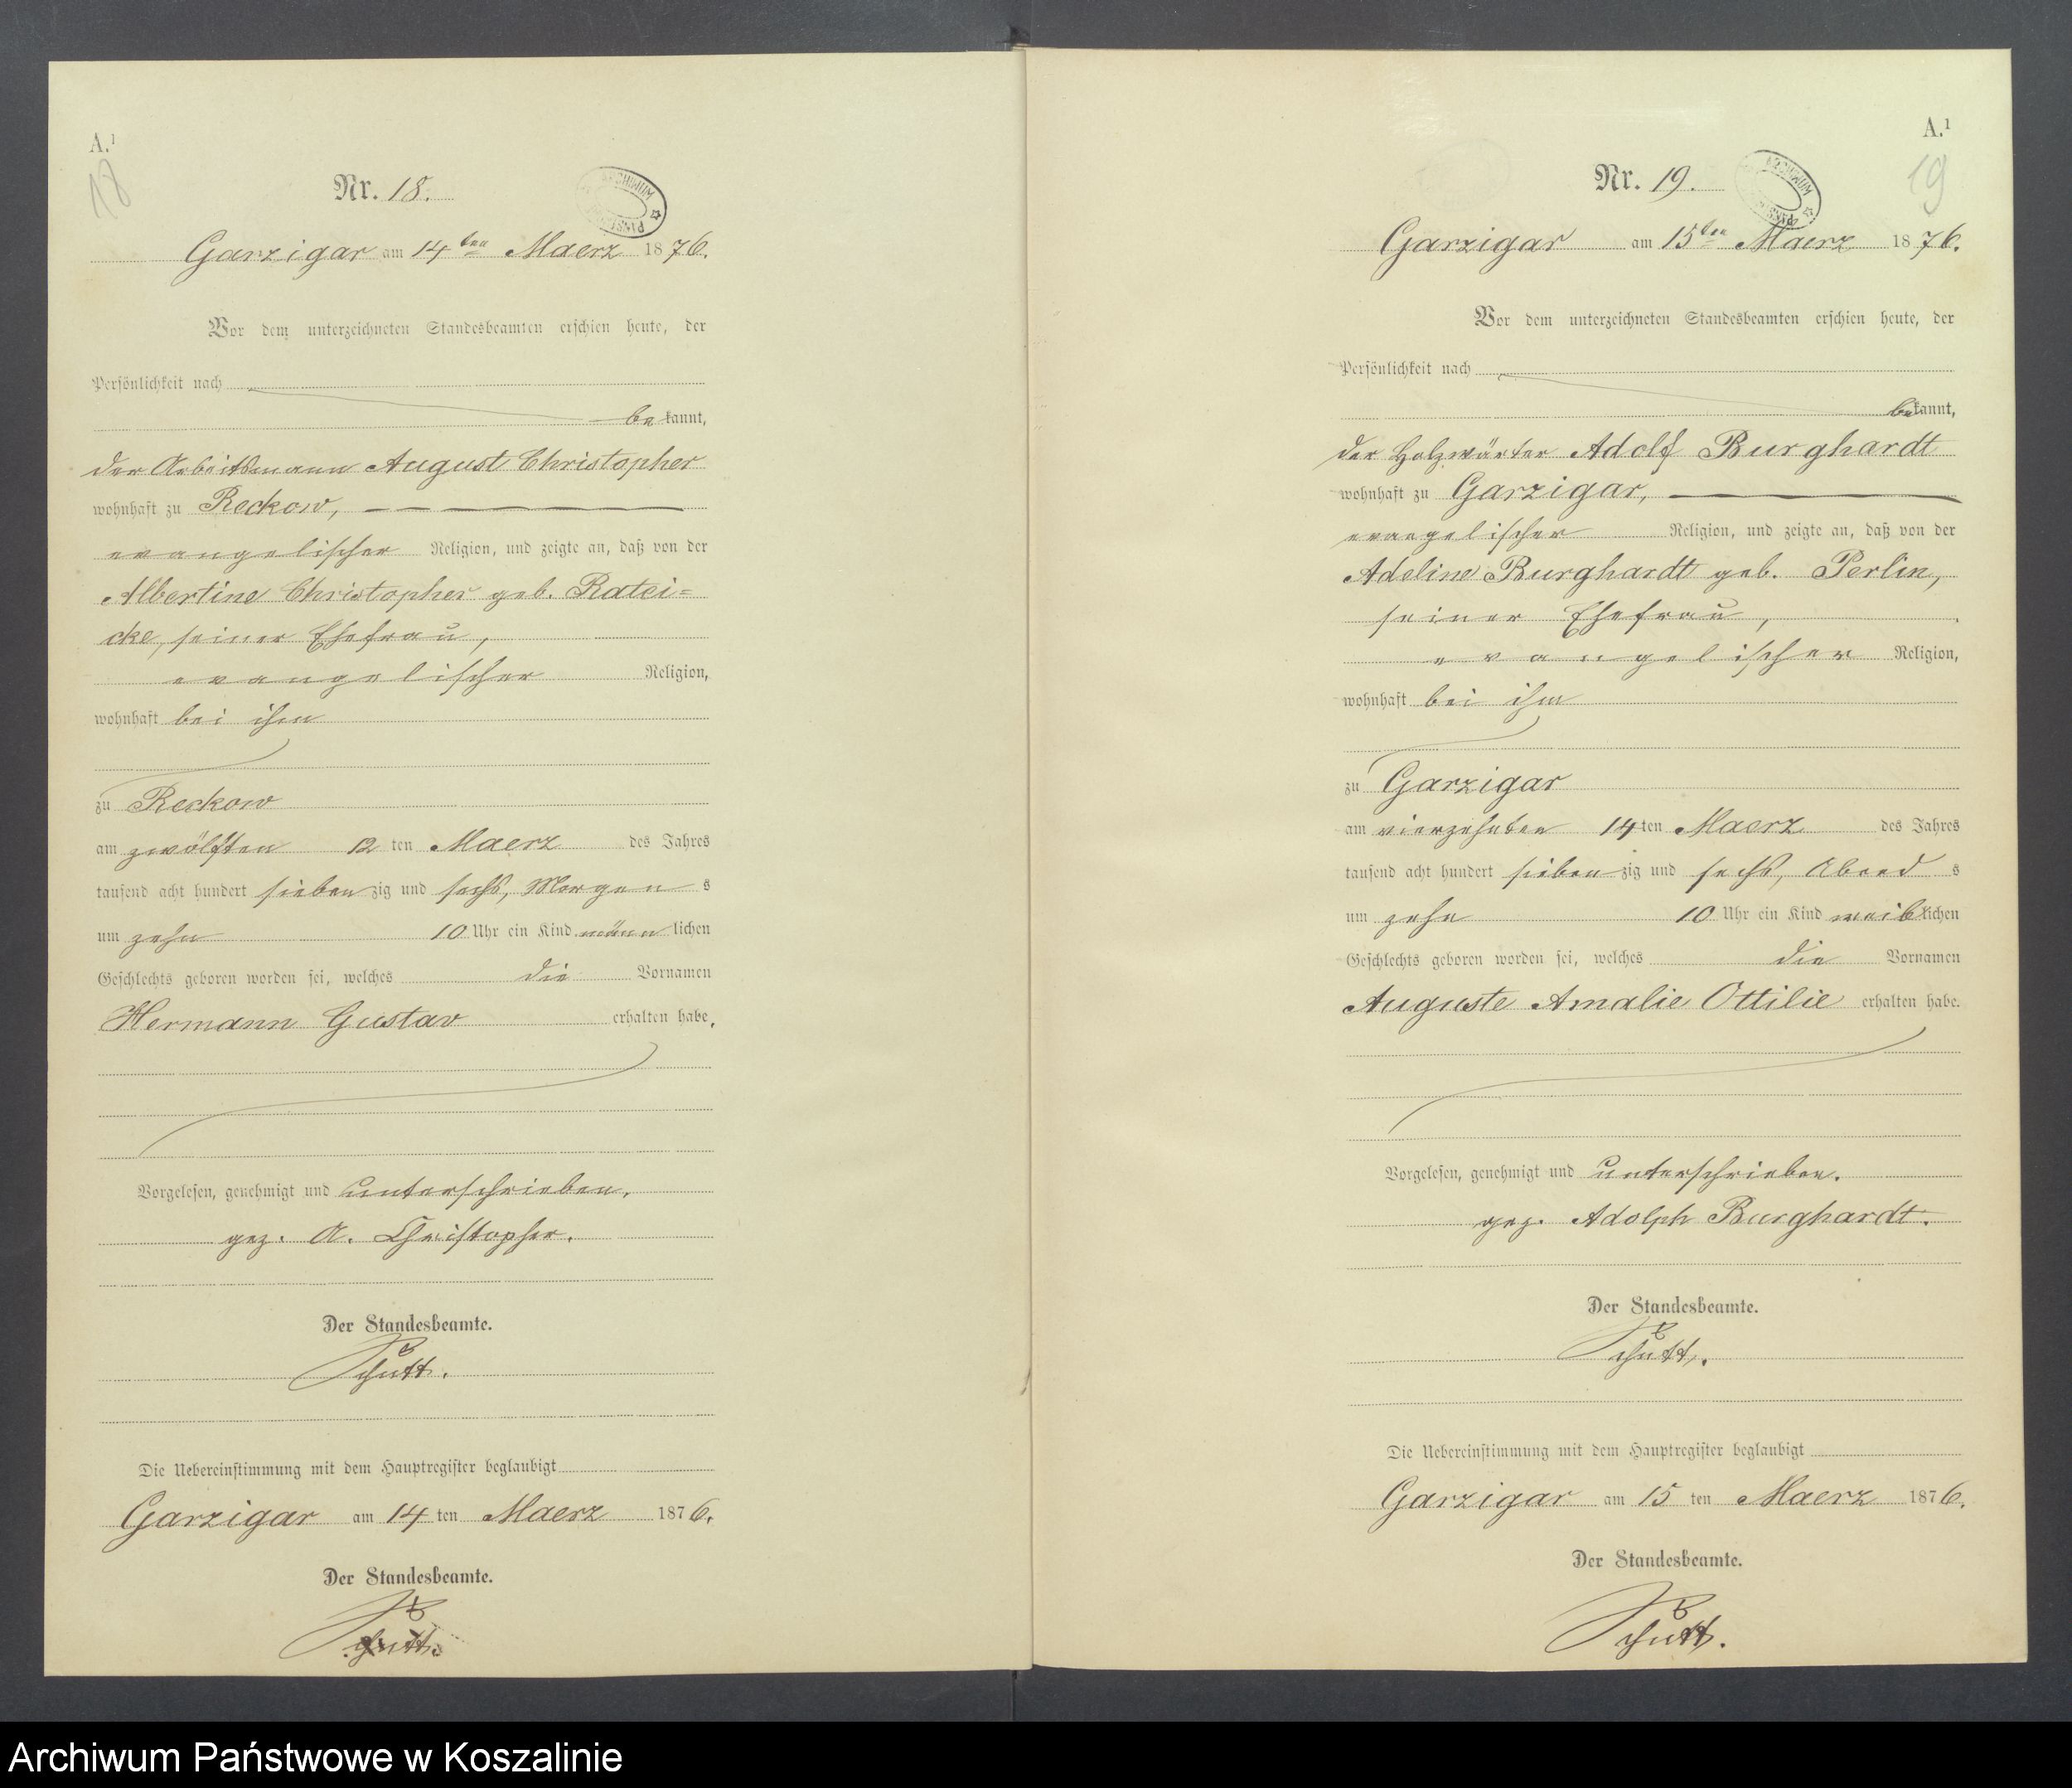 A.¹
18
Nr. 18.
ARCHIWUM
Garzigar am 14ten Maerz 1876.
Vor dem unterzeichneten Standesbeamten erschien heute, der
Persönlichkeit nach
bekannt,
der Arbeitsmann August Christopher
wohnhaft zu Reckow,
evangelischer Religion, und zeigte an, daß von der
Albertine Christopher geb. Ratei=
cke, seiner Ehefrau,
evangelischer Religion,
wohnhaft bei ihm
zu Reckow
am zwölften 12 ten Maerz des Jahres
tausend acht hundert siebenzig und sechs, Morgens
um zehn 10 Uhr ein Kind männlichen
Geschlechts geboren worden sei, welches die Vornamen
Hermann Gustav erhalten habe.
Vorgelesen, genehmigt und unterschrieben.
gez. A. Christopher.
Der Standesbeamte.
Schutt.
Die Uebereinstimmung mit dem Hauptregister beglaubigt
Garzigar am 14 ten Maerz 1876.
Der Standesbeamte.
Schutt.
A.¹
19
Nr. 19.
ARCHIWUM
Garzigar am 15ten Maerz 1876.
Vor dem unterzeichneten Standesbeamten erschien heute, der
Persönlichkeit nach
bekannt,
der Holzwärter Adolf Burghardt
wohnhaft zu Garzigar,
evangelischer Religion, und zeigte an, daß von der
Adeline Burghardt geb. Perlin,
seiner Ehefrau,
evangelischer Religion,
wohnhaft bei ihm
zu Garzigar
am vierzehnten 14 ten Maerz des Jahres
tausend acht hundert siebenzig und sechs, Abends
um zehn 10 Uhr ein Kind weiblichen
Geschlechts geboren worden sei, welches die Vornamen
Auguste Amalie Ottilie erhalten habe.
Vorgelesen, genehmigt und unterschrieben.
gez. Adolph Burghardt.
Der Standesbeamte.
Schutt.
Die Uebereinstimmung mit dem Hauptregister beglaubigt
Garzigar am 15 ten Maerz 1876.
Der Standesbeamte.
Schutt.
Archiwum Państwowe w Koszalinie